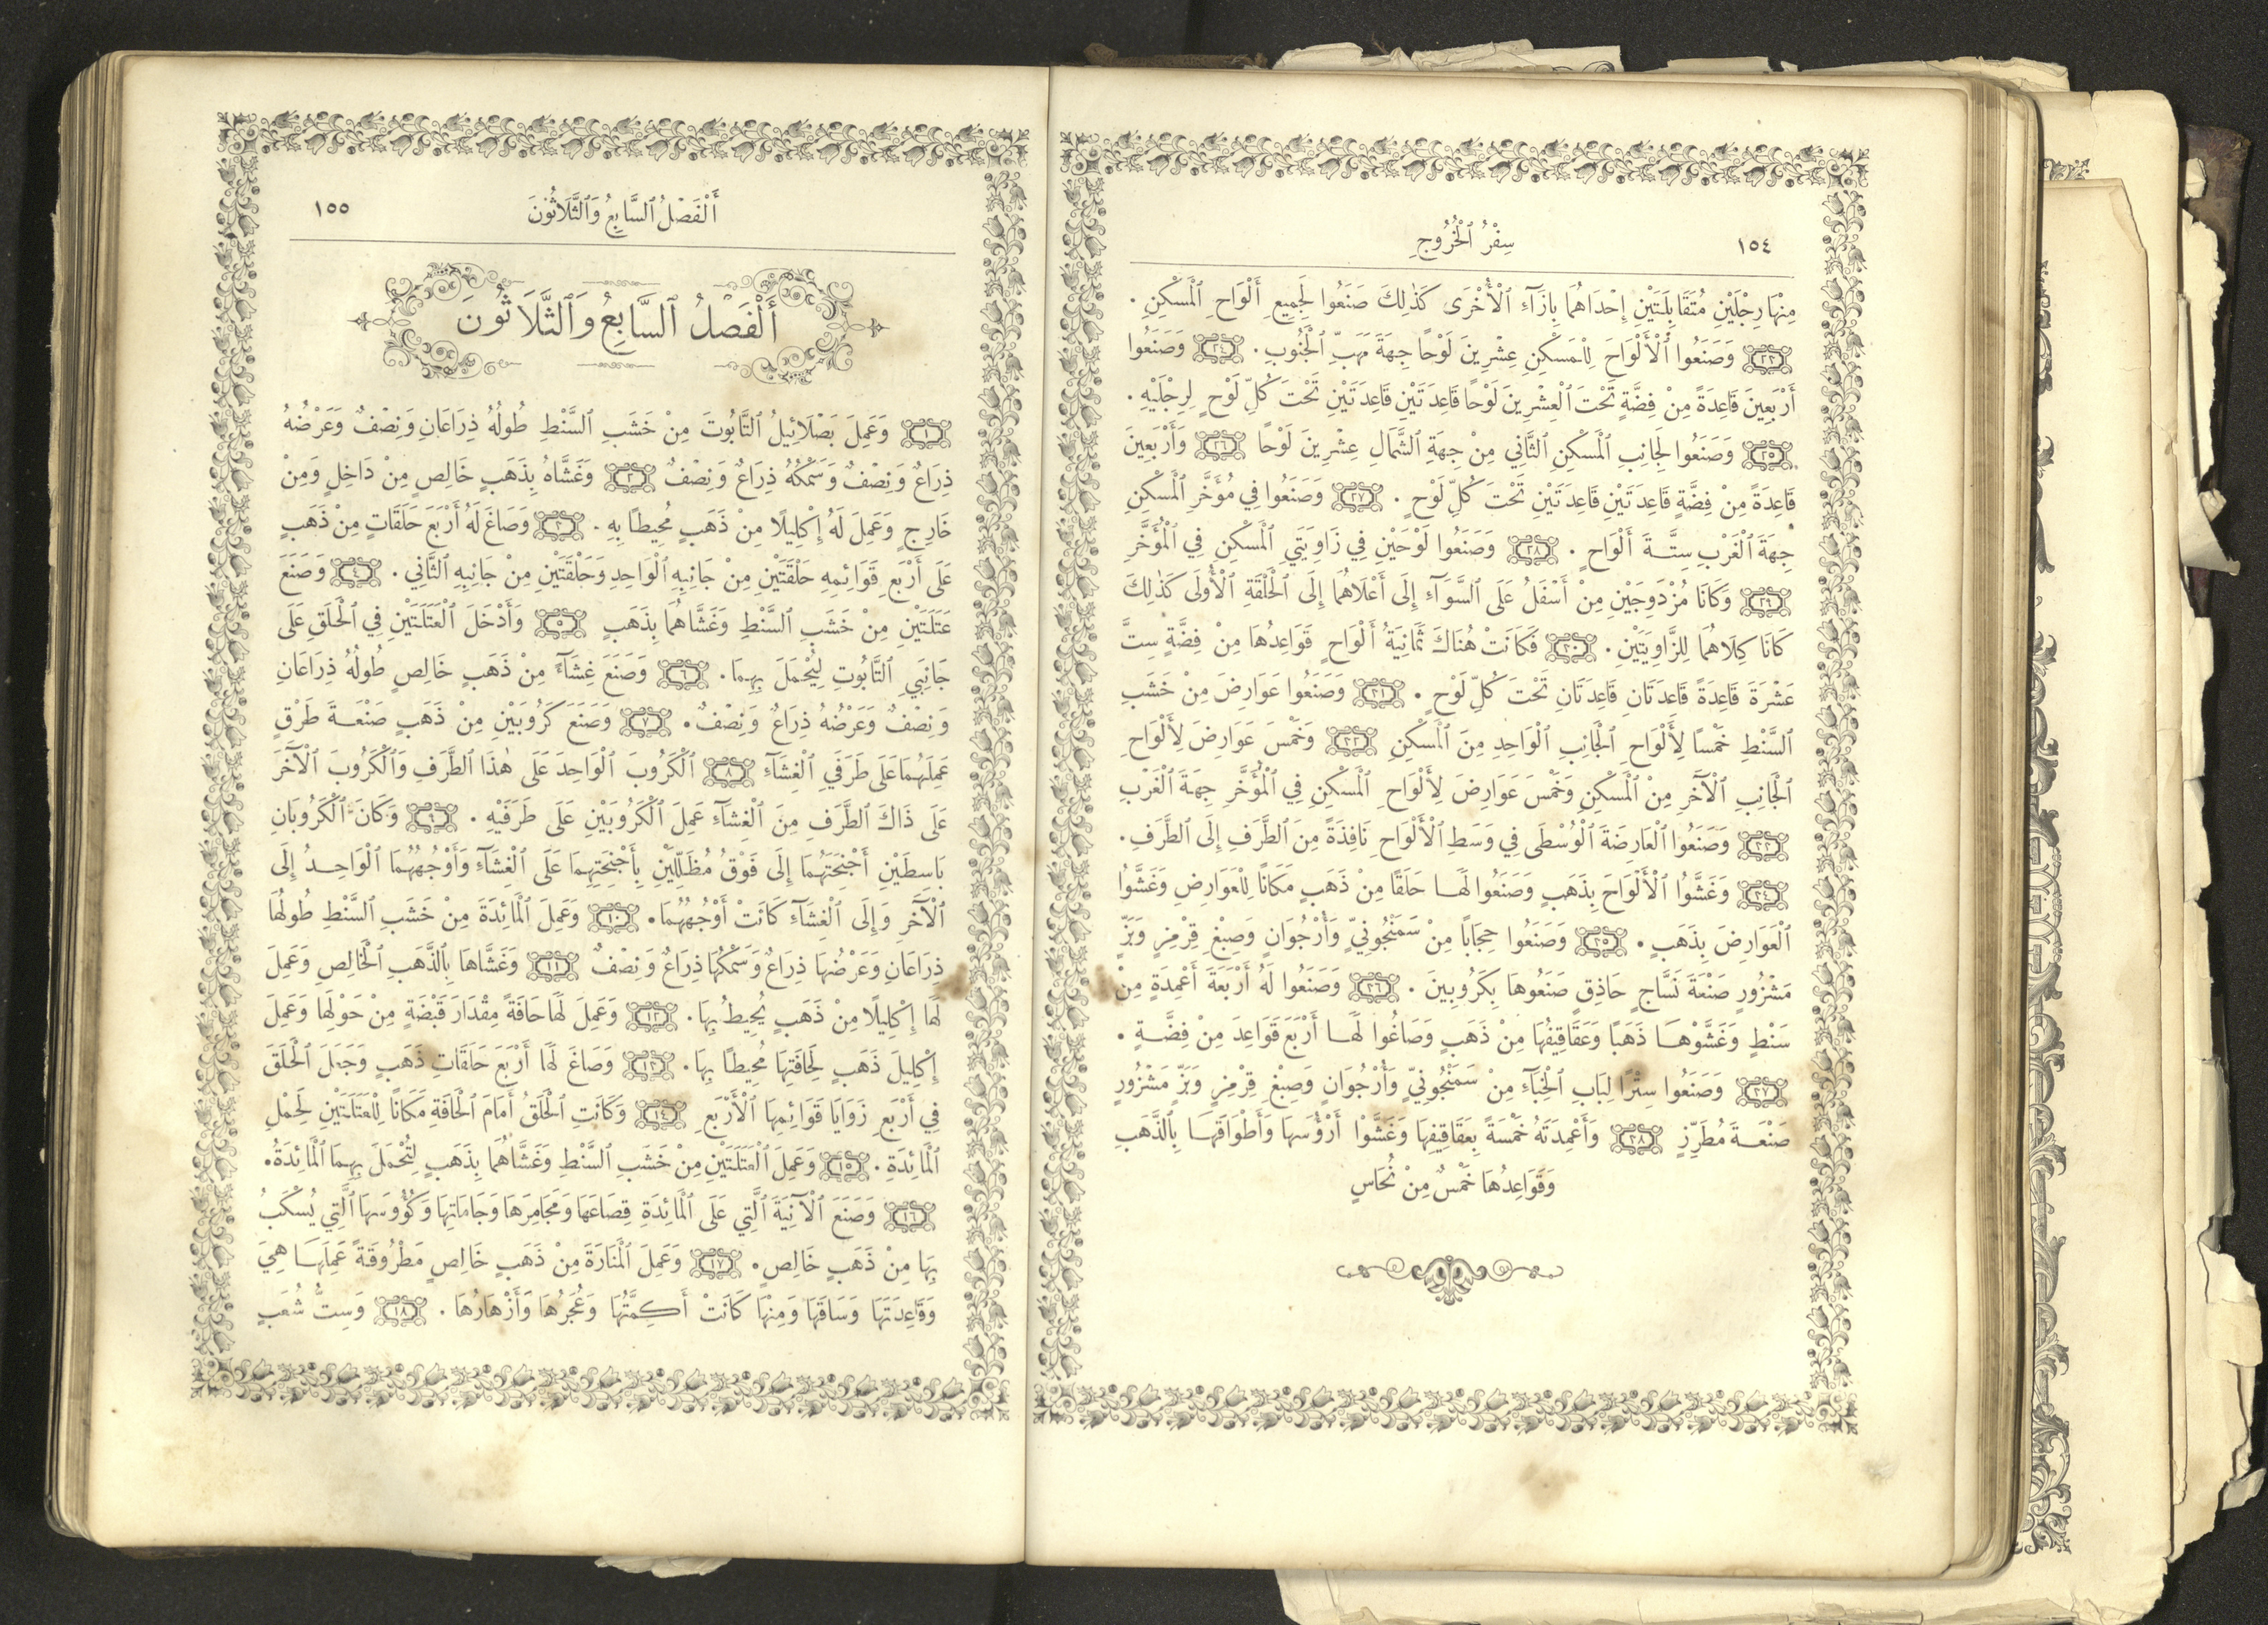 ١٥٤ سِفْرُ ٱلْخُرُوجِ
مِنْهَا رِجْلَيْنِ مُتَقَابِلَتَيْنِ إِحْدَاهُمَا بِإِزَآءِ ٱلْأُخْرَى كَذٰلِكَ صَنَعُوا لِجَمِيعِ أَلْوَاحِ ٱلْمَسْكِنِ .
٢٣ وَصَنَعُوا ٱلْأَلْوَاحَ لِلْمَسْكِنِ عِشْرِينَ لَوْحًا جِهَةَ مَهَبِّ ٱلْجَنُوبِ . ٢٤ وَصَنَعُوا
أَرْبَعِينَ قَاعِدَةً مِنْ فِضَّةٍ تَحْتَ ٱلْعِشْرِينَ لَوْحًا قَاعِدَتَيْنِ قَاعِدَتَيْنِ تَحْتَ كُلِّ لَوْحٍ لِرِجْلَيْهِ .
٢٥ وَصَنَعُوا لِجَانِبِ ٱلْمَسْكِنِ ٱلثَّانِي مِنْ جِهَةِ ٱلشَّمَالِ عِشْرِينَ لَوْحًا ٢٦ وَأَرْبَعِينَ
قَاعِدَةً مِنْ فِضَّةٍ قَاعِدَتَيْنِ قَاعِدَتَيْنِ تَحْتَ كُلِّ لَوْحٍ . ٢٧ وَصَنَعُوا فِي مُؤَخَّرِ ٱلْمَسْكِنِ
جِهَةَ ٱلْغَرْبِ سِتَّةَ أَلْوَاحٍ . ٢٨ وَصَنَعُوا لَوْحَيْنِ فِي زَاوِيَتَيِ ٱلْمَسْكِنِ فِي ٱلْمُؤَخَّرِ
٢٩ وَكَانَا مُزْدَوِجَيْنِ مِنْ أَسْفَلُ عَلَى ٱلسَّوَآءِ إِلَى أَعْلَاهُمَا إِلَى ٱلْحَلْقَةِ ٱلْأُولَى كَذٰلِكَ
كَانَا كِلَاهُمَا لِلزَّاوِيَتَيْنِ . ٣٠ فَكَانَتْ هُنَاكَ ثَمَانِيَةُ أَلْوَاحٍ قَوَاعِدُهَا مِنْ فِضَّةٍ سِتَّ
عَشْرَةَ قَاعِدَةً قَاعِدَتَانِ قَاعِدَتَانِ تَحْتَ كُلِّ لَوْحٍ . ٣١ وَصَنَعُوا عَوَارِضَ مِنْ خَشَبِ
ٱلسَّنْطِ خَمْسًا لِأَلْوَاحِ ٱلْجَانِبِ ٱلْوَاحِدِ مِنَ ٱلْمَسْكِنِ ٣٢ وَخَمْسَ عَوَارِضَ لِأَلْوَاحِ
ٱلْجَانِبِ ٱلْآخَرِ مِنَ ٱلْمَسْكِنِ وَخَمْسَ عَوَارِضَ لِأَلْوَاحِ ٱلْمَسْكِنِ فِي ٱلْمُؤَخَّرِ جِهَةَ ٱلْغَرْبِ
٣٣ وَصَنَعُوا ٱلْعَارِضَةَ ٱلْوُسْطَى فِي وَسَطِ ٱلْأَلْوَاحِ نَافِذَةً مِنَ ٱلطَّرَفِ إِلَى ٱلطَّرَفِ .
٣٤ وَغَشَّوُا ٱلْأَلْوَاحَ بِذَهَبٍ وَصَنَعُوا لَهَا حَلَقًا مِنْ ذَهَبٍ مَكَانًا لِلْعَوَارِضِ وَغَشَّوُا
ٱلْعَوَارِضَ بِذَهَبٍ . ٣٥ وَصَنَعُوا حِجَابًا مِنْ سَمَنْجُونِيٍّ وَأُرْجُوَانٍ وَصِبْغِ قِرْمِزٍ وَبَزٍّ
مَشْزُورٍ صَنْعَةَ نَسَّاجٍ حَاذِقٍ صَنَعُوهَا بِكَرُوبِينَ . ٣٦ وَصَنَعُوا لَهُ أَرْبَعَةَ أَعْمِدَةٍ مِنْ
سَنْطٍ وَغَشَّوْهَا ذَهَبًا وَعَقَاقِيفُهَا مِنْ ذَهَبٍ وَصَاغُوا لَهَا أَرْبَعَ قَوَاعِدَ مِنْ فِضَّةٍ .
٣٧ وَصَنَعُوا سِتْرًا لِبَابِ ٱلْخِبَآءِ مِنْ سَمَنْجُونِيٍّ وَأُرْجُوَانٍ وَصِبْغِ قِرْمِزٍ وَبَزٍّ مَشْزُورٍ
صَنْعَةَ مُطَرِّزٍ ٣٨ وَأَعْمِدَتَهُ خَمْسَةً بِعَقَاقِيفِهَا وَغَشَّوْا أَرْؤُسَهَا وَأَطْوَاقَهَا بِٱلذَّهَبِ
وَقَوَاعِدُهَا خَمْسٌ مِنْ نُحَاسٍ
أَلْفَصْلُ ٱلسَّابِعُ وَٱلثَّلَاثُونَ ١٥٥
أَلْفَصْلُ ٱلسَّابِعُ وَٱلثَّلَاثُونَ
١ وَعَمِلَ بَصَلْئِيلُ ٱلتَّابُوتَ مِنْ خَشَبِ ٱلسَّنْطِ طُولُهُ ذِرَاعَانِ وَنِصْفٌ وَعَرْضُهُ
ذِرَاعٌ وَنِصْفٌ وَسَمْكُهُ ذِرَاعٌ وَنِصْفٌ ٢ وَغَشَّاهُ بِذَهَبٍ خَالِصٍ مِنْ دَاخِلٍ وَمِنْ
خَارِجٍ وَعَمِلَ لَهُ إِكْلِيلًا مِنْ ذَهَبٍ مُحِيطًا بِهِ . ٣ وَصَاغَ لَهُ أَرْبَعَ حَلَقَاتٍ مِنْ ذَهَبٍ
عَلَى أَرْبَعِ قَوَائِمِهِ حَلْقَتَيْنِ مِنْ جَانِبِهِ ٱلْوَاحِدِ وَحَلْقَتَيْنِ مِنْ جَانِبِهِ ٱلثَّانِي . ٤ وَصَنَعَ
عَتَلَتَيْنِ مِنْ خَشَبِ ٱلسَّنْطِ وَغَشَّاهُمَا بِذَهَبٍ ٥ وَأَدْخَلَ ٱلْعَتَلَتَيْنِ فِي ٱلْحَلَقِ عَلَى
جَانِبَيِ ٱلتَّابُوتِ لِيُحْمَلَ بِهِمَا . ٦ وَصَنَعَ غِشَآءً مِنْ ذَهَبٍ خَالِصٍ طُولُهُ ذِرَاعَانِ
وَنِصْفٌ وَعَرْضُهُ ذِرَاعٌ وَنِصْفٌ . ٧ وَصَنَعَ كَرُوبَيْنِ مِنْ ذَهَبٍ صَنْعَةَ طَرْقٍ
عَمِلَهُمَا عَلَى طَرَفَيِ ٱلْغِشَآءِ ٨ ٱلْكَرُوبَ ٱلْوَاحِدَ عَلَى هٰذَا ٱلطَّرَفِ وَٱلْكَرُوبَ ٱلْآخَرَ
عَلَى ذَاكَ ٱلطَّرَفِ مِنَ ٱلْغِشَآءِ عَمِلَ ٱلْكَرُوبَيْنِ عَلَى طَرَفَيْهِ . ٩ وَكَانَ ٱلْكَرُوبَانِ
بَاسِطَيْنِ أَجْنِحَتَهُمَا إِلَى فَوْقُ مُظَلِّلَيْنِ بِأَجْنِحَتِهِمَا عَلَى ٱلْغِشَآءِ وَأَوْجُهُهُمَا ٱلْوَاحِدُ إِلَى
ٱلْآخَرِ وَإِلَى ٱلْغِشَآءِ كَانَتْ أَوْجُهُهُمَا . ١٠ وَعَمِلَ ٱلْمَائِدَةَ مِنْ خَشَبِ ٱلسَّنْطِ طُولُهَا
ذِرَاعَانِ وَعَرْضُهَا ذِرَاعٌ وَسَمْكُهَا ذِرَاعٌ وَنِصْفٌ ١١ وَغَشَّاهَا بِٱلذَّهَبِ ٱلْخَالِصِ وَعَمِلَ
لَهَا إِكْلِيلًا مِنْ ذَهَبٍ يُحِيطُ بِهَا . ١٢ وَعَمِلَ لَهَا حَافَةً مِقْدَارَ قَبْضَةٍ مِنْ حَوْلِهَا وَعَمِلَ
إِكْلِيلَ ذَهَبٍ لِحَافَتِهَا مُحِيطًا بِهَا . ١٣ وَصَاغَ لَهَا أَرْبَعَ حَلَقَاتِ ذَهَبٍ وَجَعَلَ ٱلْحَلَقَ
فِي أَرْبَعِ زَوَايَا قَوَائِمِهَا ٱلْأَرْبَعِ ١٤ وَكَانَتِ ٱلْحَلَقُ أَمَامَ ٱلْحَافَةِ مَكَانًا لِلْعَتَلَتَيْنِ لِحَمْلِ
ٱلْمَائِدَةِ . ١٥ وَعَمِلَ ٱلْعَتَلَتَيْنِ مِنْ خَشَبِ ٱلسَّنْطِ وَغَشَّاهُمَا بِذَهَبٍ لِتُحْمَلَ بِهِمَا ٱلْمَائِدَةُ .
١٦ وَصَنَعَ ٱلْآنِيَةَ ٱلَّتِي عَلَى ٱلْمَائِدَةِ قِصَاعَهَا وَمَجَامِرَهَا وَجَامَاتِهَا وَكُؤُوسَهَا ٱلَّتِي يُسْكَبُ
بِهَا مِنْ ذَهَبٍ خَالِصٍ . ١٧ وَعَمِلَ ٱلْمَنَارَةَ مِنْ ذَهَبٍ خَالِصٍ مَطْرُوقَةً عَمِلَهَا هِيَ
وَقَاعِدَتَهَا وَسَاقَهَا وَمِنْهَا كَانَتْ أَكِمَّتُهَا وَعُجَرُهَا وَأَزْهَارُهَا . ١٨ وَسِتُّ شُعَبٍ